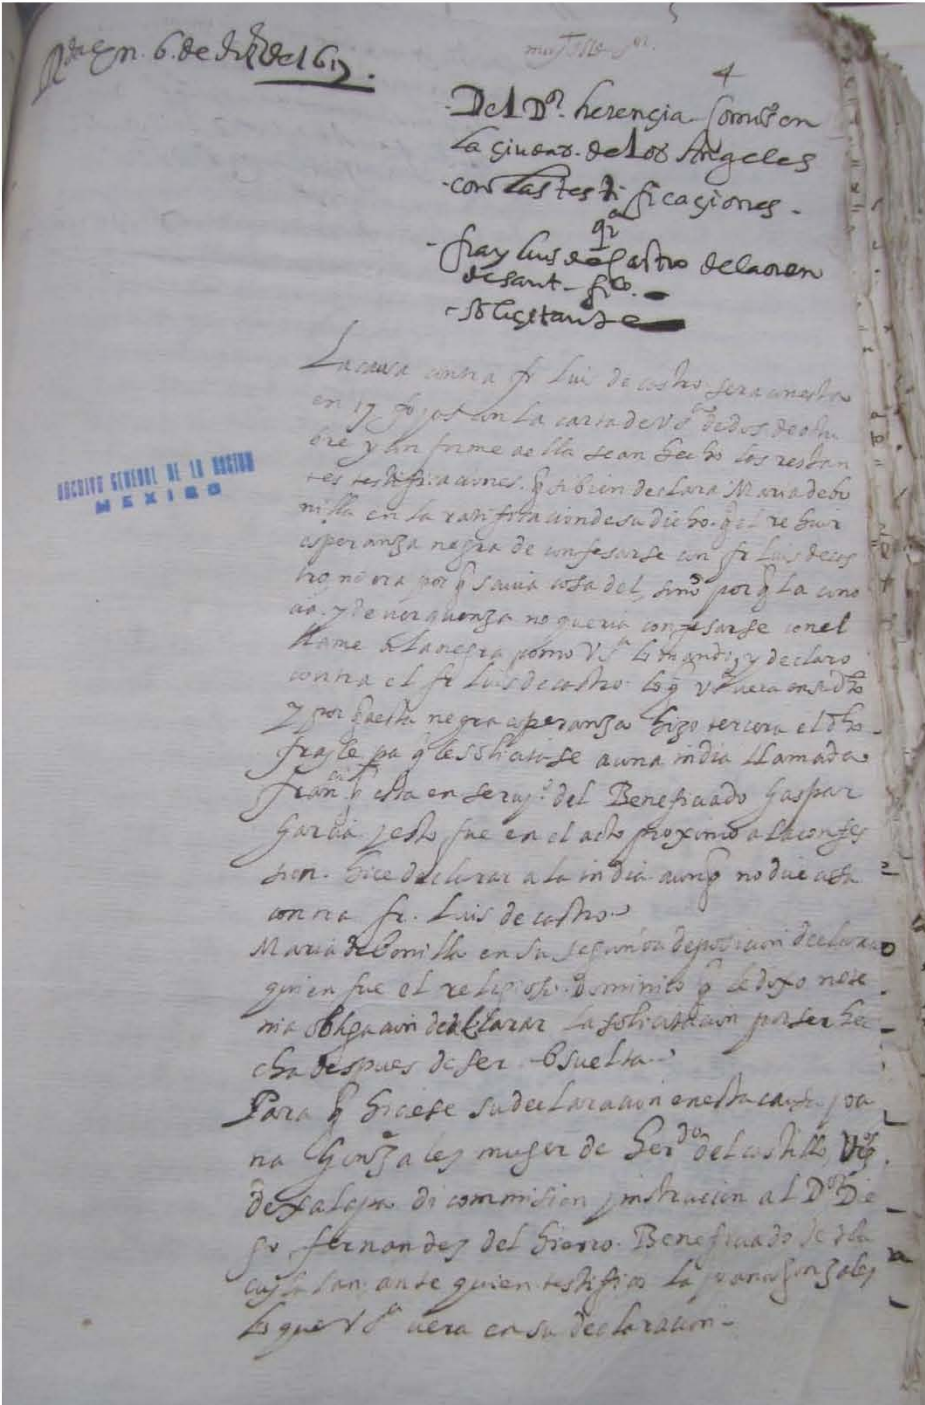 en 6. de del 617.
4
Del Dor. herengia Comiso en
la çiudad. de los Angeles
con las testificaçiones.
qa
fray luis de Castro de la orden
de sant. frco.
solicitante
La causa contra fr Luis de castro sera con esta
en 17 fojas con la carta de VSa de dos de otu
bre y conforme a ella se an hecho las restan
tes testificaciones. q si bien declara Maria de bo
nilla en la ratificacion de su dicho. q el rehuir
esperanza negra de confesarse con fr Luis de cas
tro, no era por q savia cosa del, sino por q la cono
cia. y de verguenza no queria confesarse con el
llame a la negra como VSa lo mando, y declaro
contra el fr Luis de castro lo q VSa vera en su dho
y por q a esta negra esperanza hizo tercera el dho
frayle pa q le solicitase a una india llamada
Franca q esta en seruo. del Beneficiado Gaspar
Garcia y esto fue en el acto proximo a la confes
sion. hice declarar a la india. aunq no dice cosa
contra fr. Luis de castro.
Maria de bonilla en su segunda deposicion declara
quien fue el religioso dominico q le dixo no te
nia obligacion de declarar la solicitacion por ser he
cha despues de ser absuelta.
Para q hiciese su declaracion en esta causa, joa
na Gonzalez muger de Herdo del castillo Vzo.
de Xalapa di commision y instrucion al Dor Die
go fernandez del hierro. Beneficiado de
ante quien testifico la joana gonzalez
lo que VSa vera en su declaracion.
ARCHIVO GENERAL DE LA NACION
MEXICO